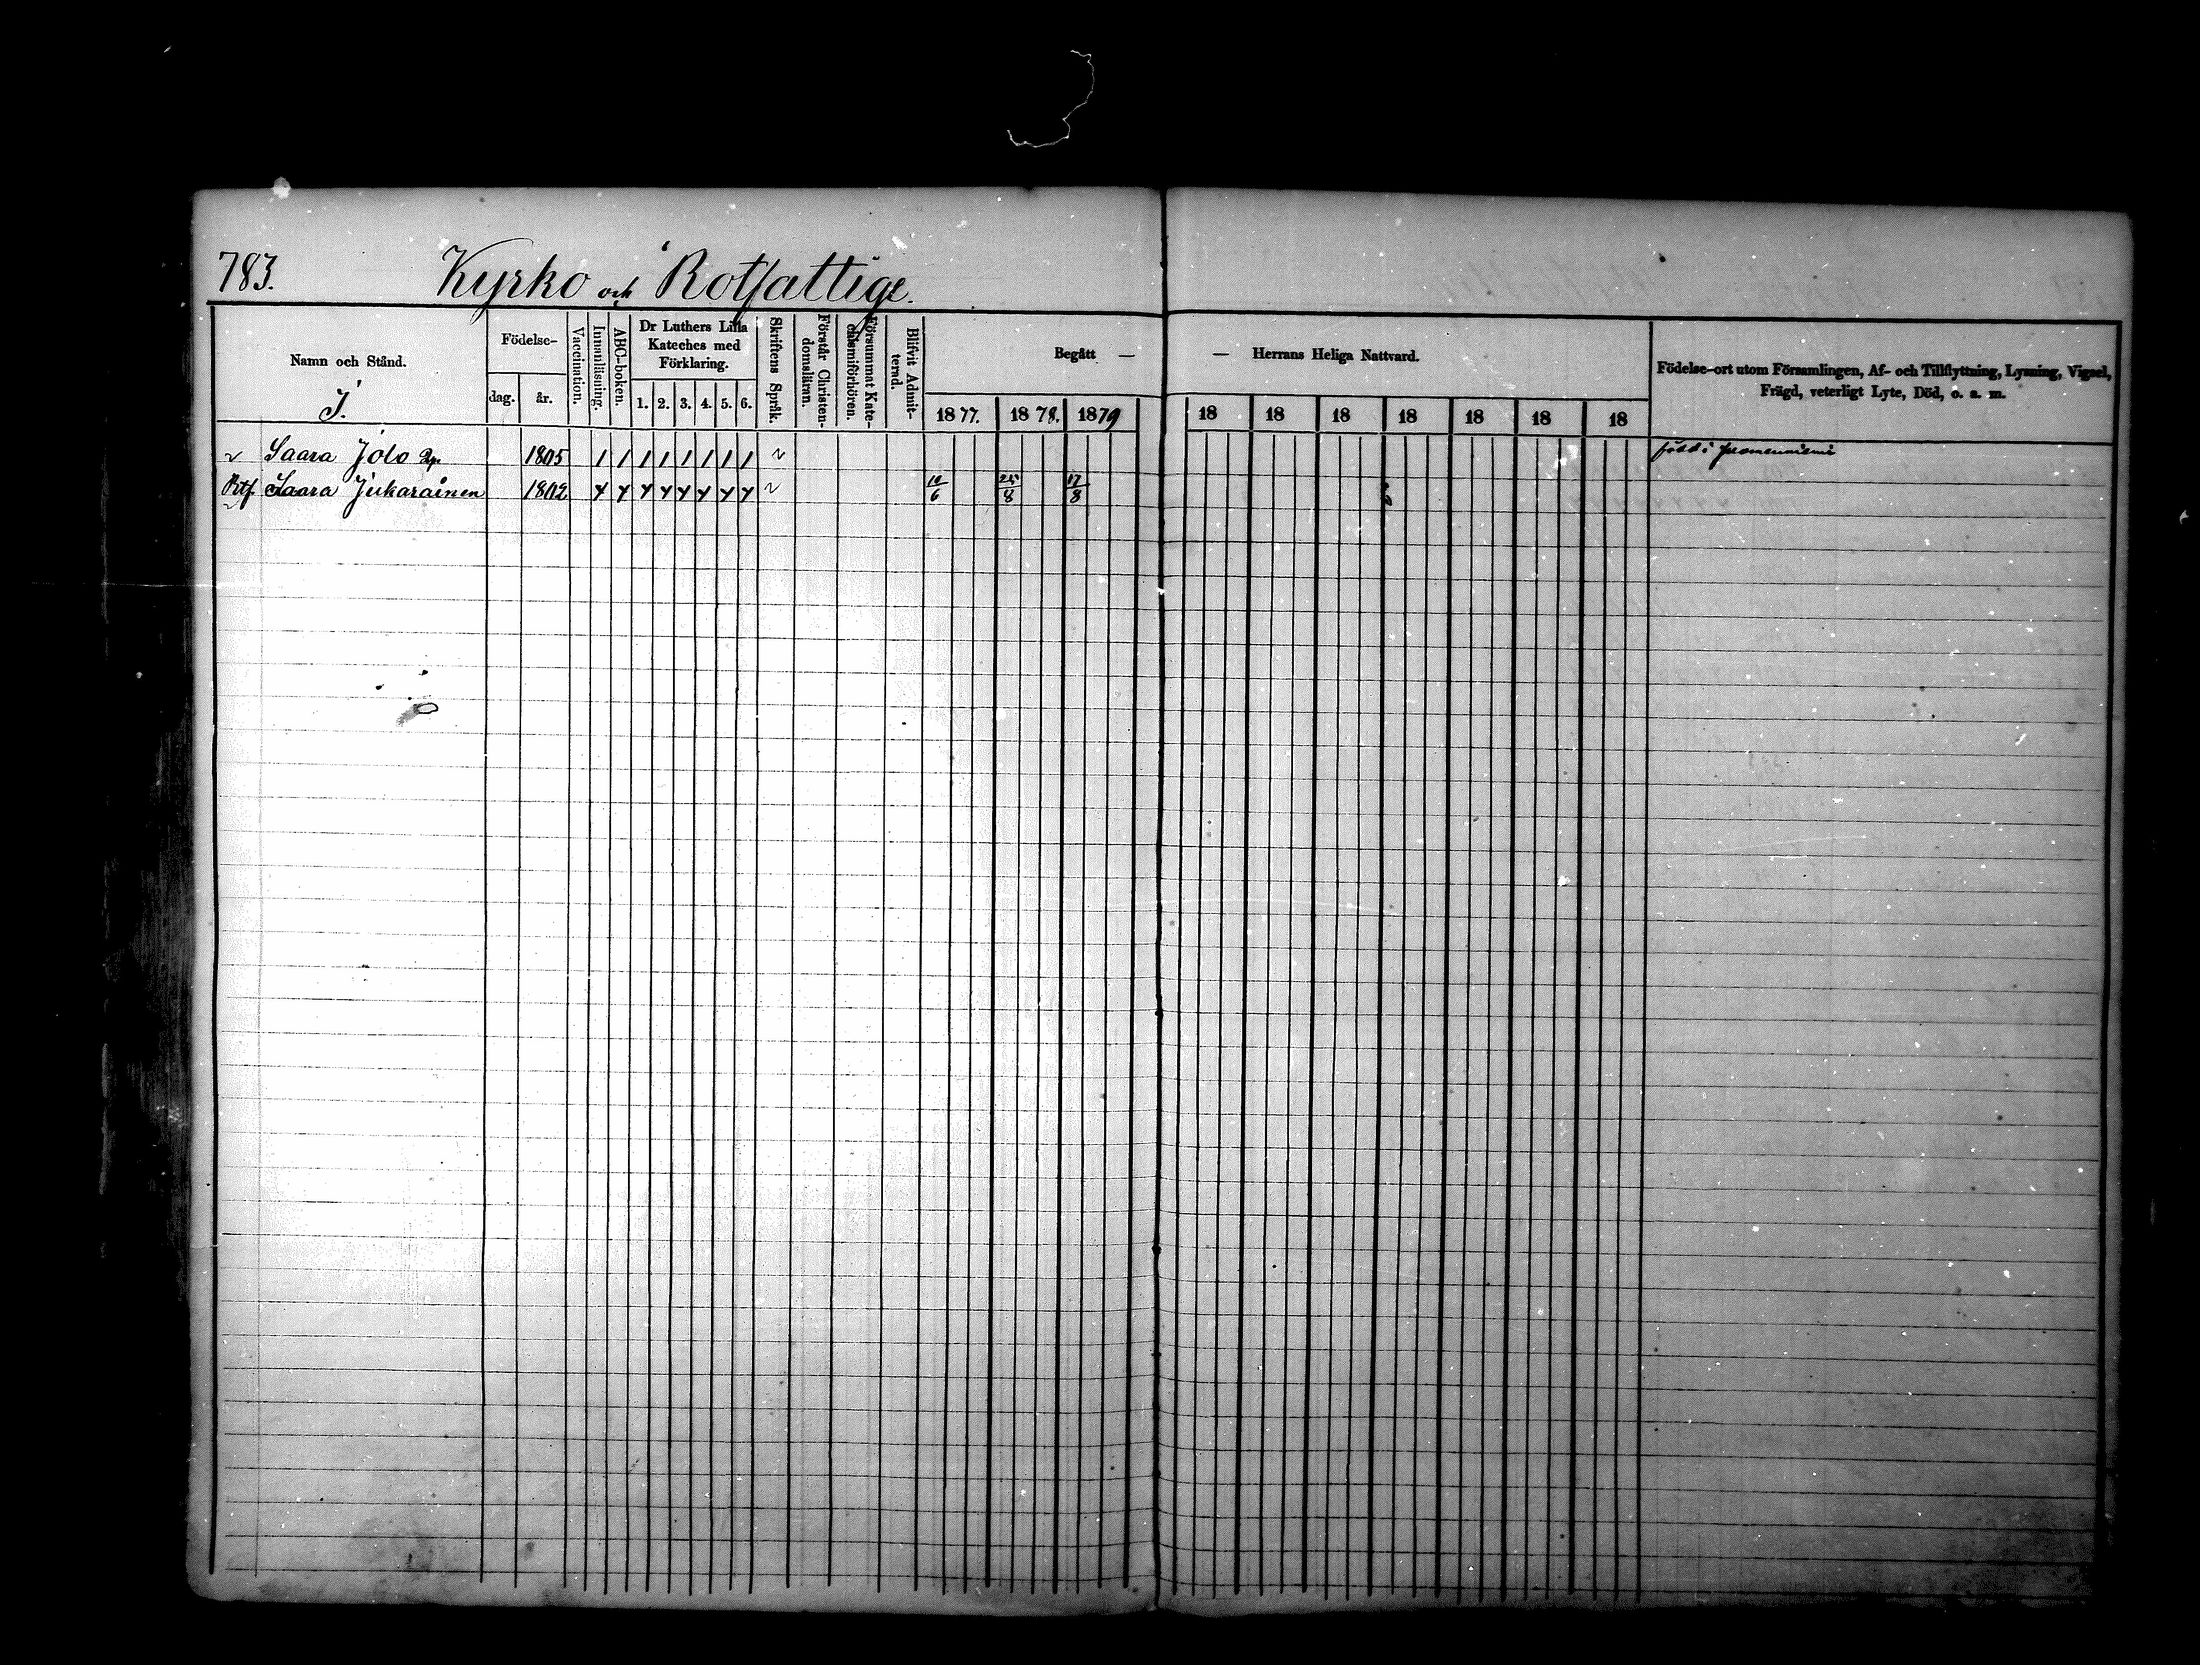 783. Kyrko och Rotfattige.
Namn och Stånd.
J.
Födelse-
dag. år.
Vaccination.
Innanläsning.
ABC-boken.
Dr Luthers Lilla
Kateches med
Förklaring.
1. 2. 3. 4. 5. 6.
Skriftens Språk.
Förstår Christen-
domsläran.
Försummat Kate-
chismiförhören.
Blifvit Admit-
terad.
Begått — — Herrans Heliga Nattvard.
1877. 1878. 1879 18 18 18 18 18 18 18
Födelse-ort utom Församlingen, Af- och Tillflyttning, Lysning, Vigsel,
Frägd, veterligt Lyte, Död, o. s. m.
Saara Jolo 1805 född i
Rtf. Saara Jukarainen 1802 10/6 25/8 17/8